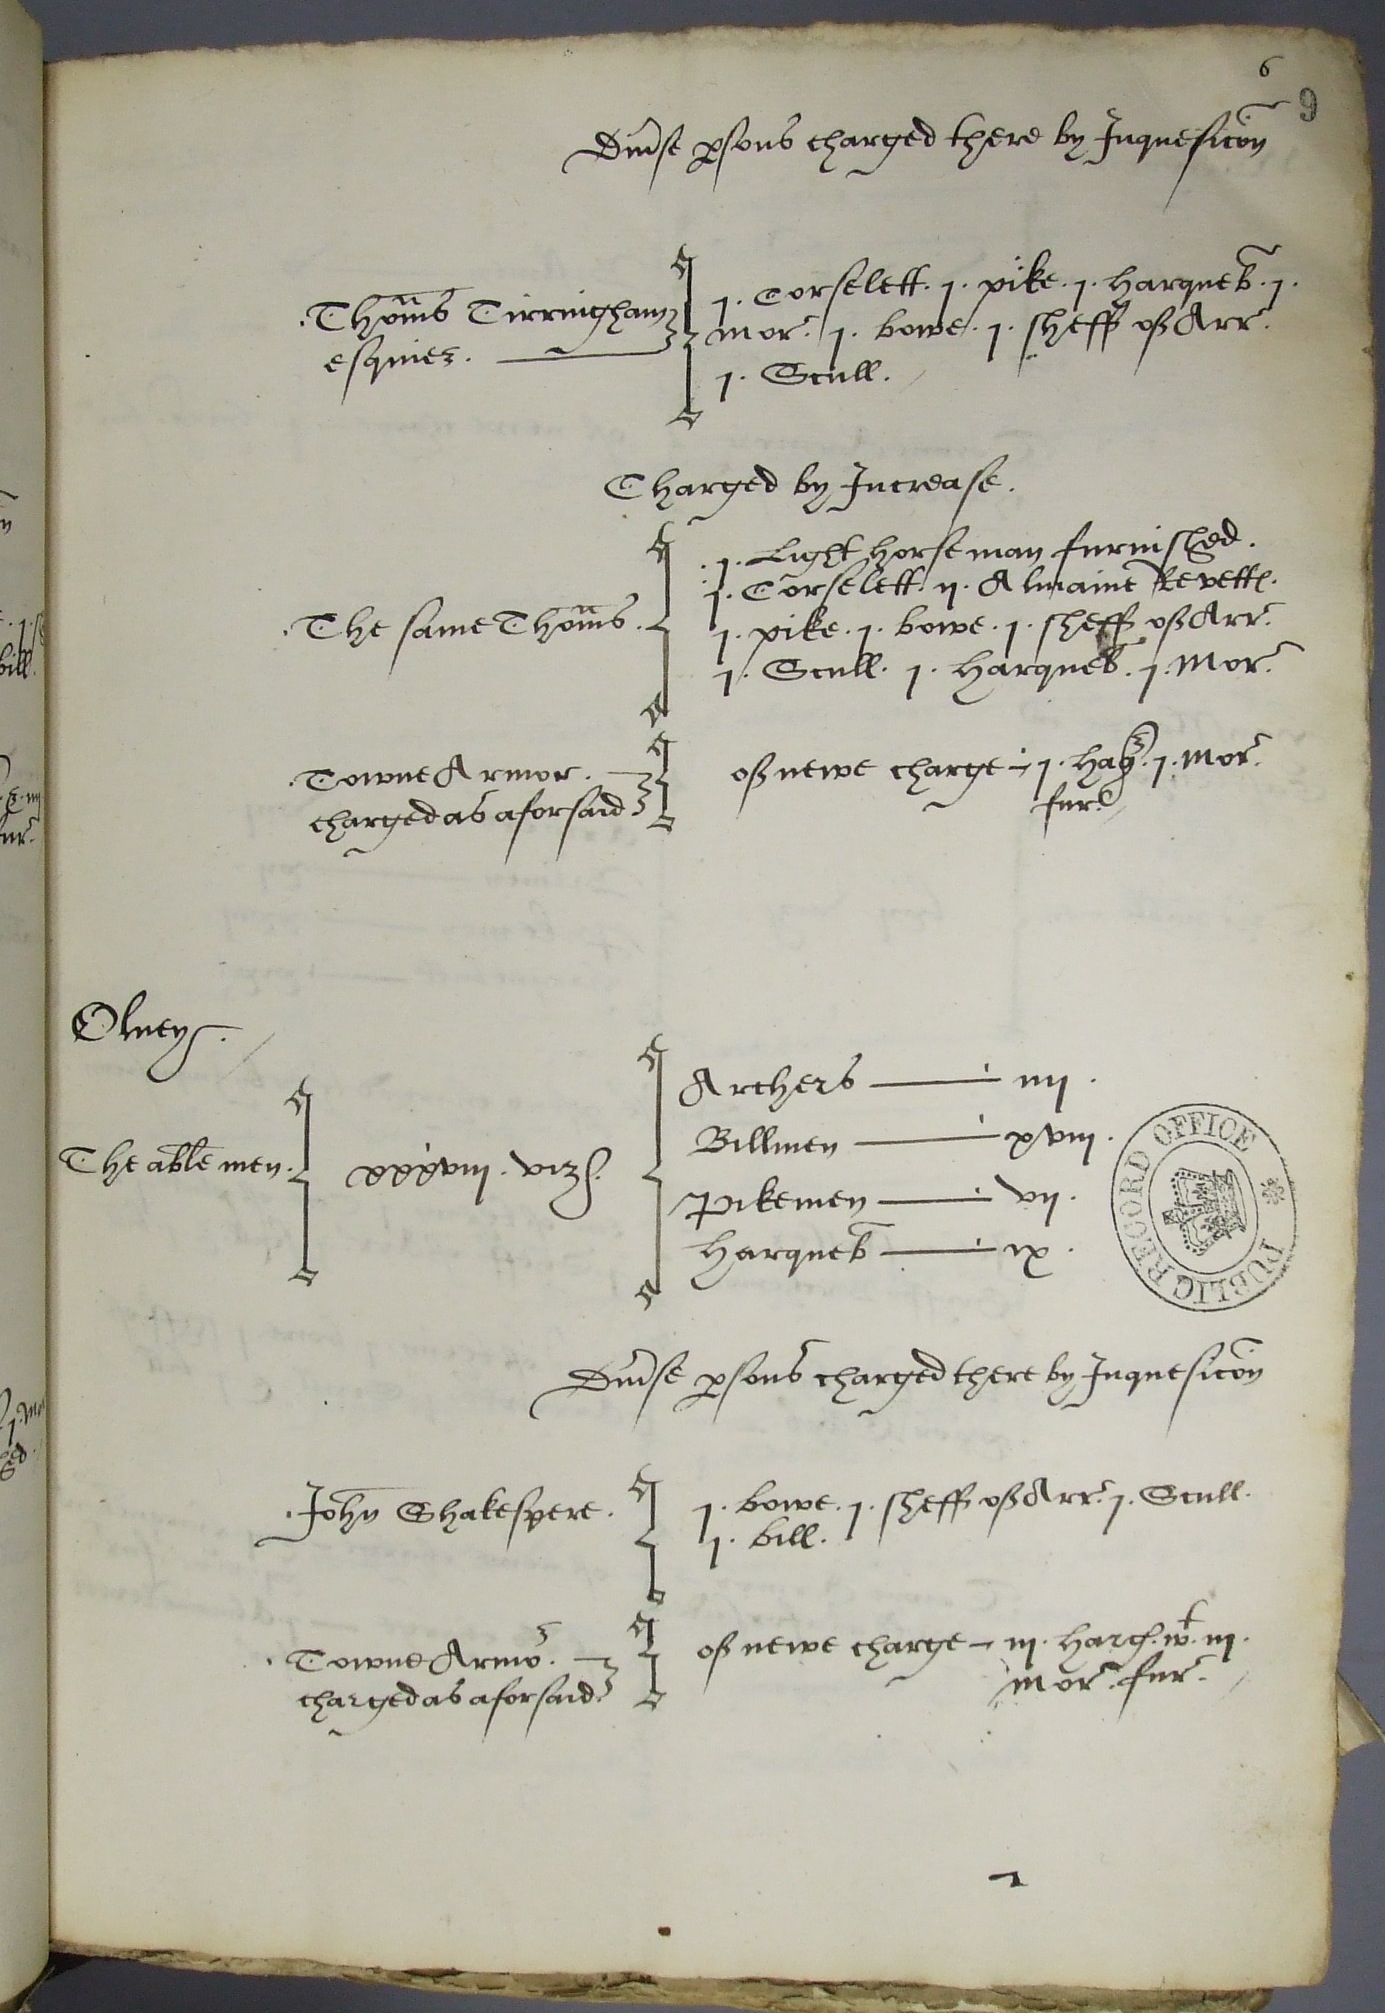 6
9
Div̄se p̱sons charged there by Inquesicōn
Thom̄s Tirringham
esquier.
1. Corselett. 1. pike. 1. Harqueb̄. 1.
mor. 1. bowe. 1. sheff of Arr.
1. Scull.
Charged by Increase.
The same Thom̄s.
1. Light horseman furnished.
1. Corselett. ij. Almaine Revettꝭ.
1. pike. 1. bowe. 1. sheff of Arr.
1. Scull. 1. harqueb̄. 1. Mor.
Towne Armor.
charged as aforsaid
of newe charge – 1. harq. 1. mor.
fur.
Olney.
The able men.
xxxviij. vizꝭ.
Archers — iiij.
Billmen — xviij.
Pikemen — vij.
Harqueb̄ — ix.
PUBLIC RECORD OFFICE
Div̄se p̱sons charged there by Inquesicōn
John Shakespere.
1. bowe. 1. sheff of Arr. 1. Scull.
1. bill.
Towne Armor.
charged as aforsaid
of newe charge – iij. Harq. wt. iij.
mor. fur.